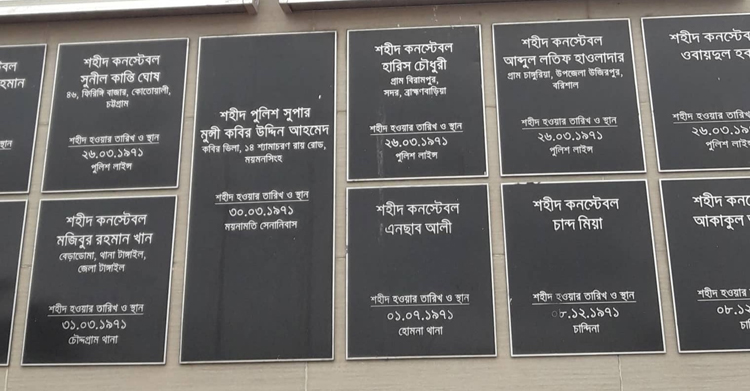 শহীদ কনস্টেবল
সুনীল কান্তি ঘোষ
৪৬, ফিরিঙ্গি বাজার, কোতোয়ালী,
চট্টগ্রাম
শহীদ হওয়ার তারিখ ও স্থান
২৬.০৩.১৯৭১
পুলিশ লাইন্স
শহীদ পুলিশ সুপার
মুন্সী কবির উদ্দিন আহমেদ
কবির ভিলা, ১৪ শ্যামাচরণ রায় রোড,
ময়মনসিংহ
শহীদ হওয়ার তারিখ ও স্থান
৩০.০৩.১৯৭১
ময়নামতি সেনানিবাস
শহীদ কনস্টেবল
হারিস চৌধুরী
গ্রাম বিরামপুর,
সদর, ব্রাহ্মণবাড়িয়া
শহীদ হওয়ার তারিখ ও স্থান
২৬.০৩.১৯৭১
পুলিশ লাইন্স
শহীদ কনস্টেবল
আব্দুল লতিফ হাওলাদার
গ্রাম চাঙ্গুরিয়া, উপজেলা উজিরপুর,
বরিশাল
শহীদ হওয়ার তারিখ ও স্থান
২৬.০৩.১৯৭১
পুলিশ লাইন্স
শহীদ
ওবায়দুল
শহীদ হওয়ার তারিখ
২৬.০৩.১৯৭১
পুলিশ
শহীদ কনস্টেবল
মজিবুর রহমান খান
বেড়াডোমা, থানা টাঙ্গাইল,
জেলা টাঙ্গাইল
শহীদ হওয়ার তারিখ ও স্থান
৩১.০৩.১৯৭১
চৌদ্দগ্রাম থানা
শহীদ কনস্টেবল
এনছাব আলী
শহীদ হওয়ার তারিখ ও স্থান
০১.০৭.১৯৭১
হোমনা থানা
শহীদ কনস্টেবল
চান্দ মিয়া
শহীদ হওয়ার তারিখ ও স্থান
০৮.১২.১৯৭১
চান্দিনা
শহীদ
আকাকুল
শহীদ হওয়ার তারিখ
০৮.১২